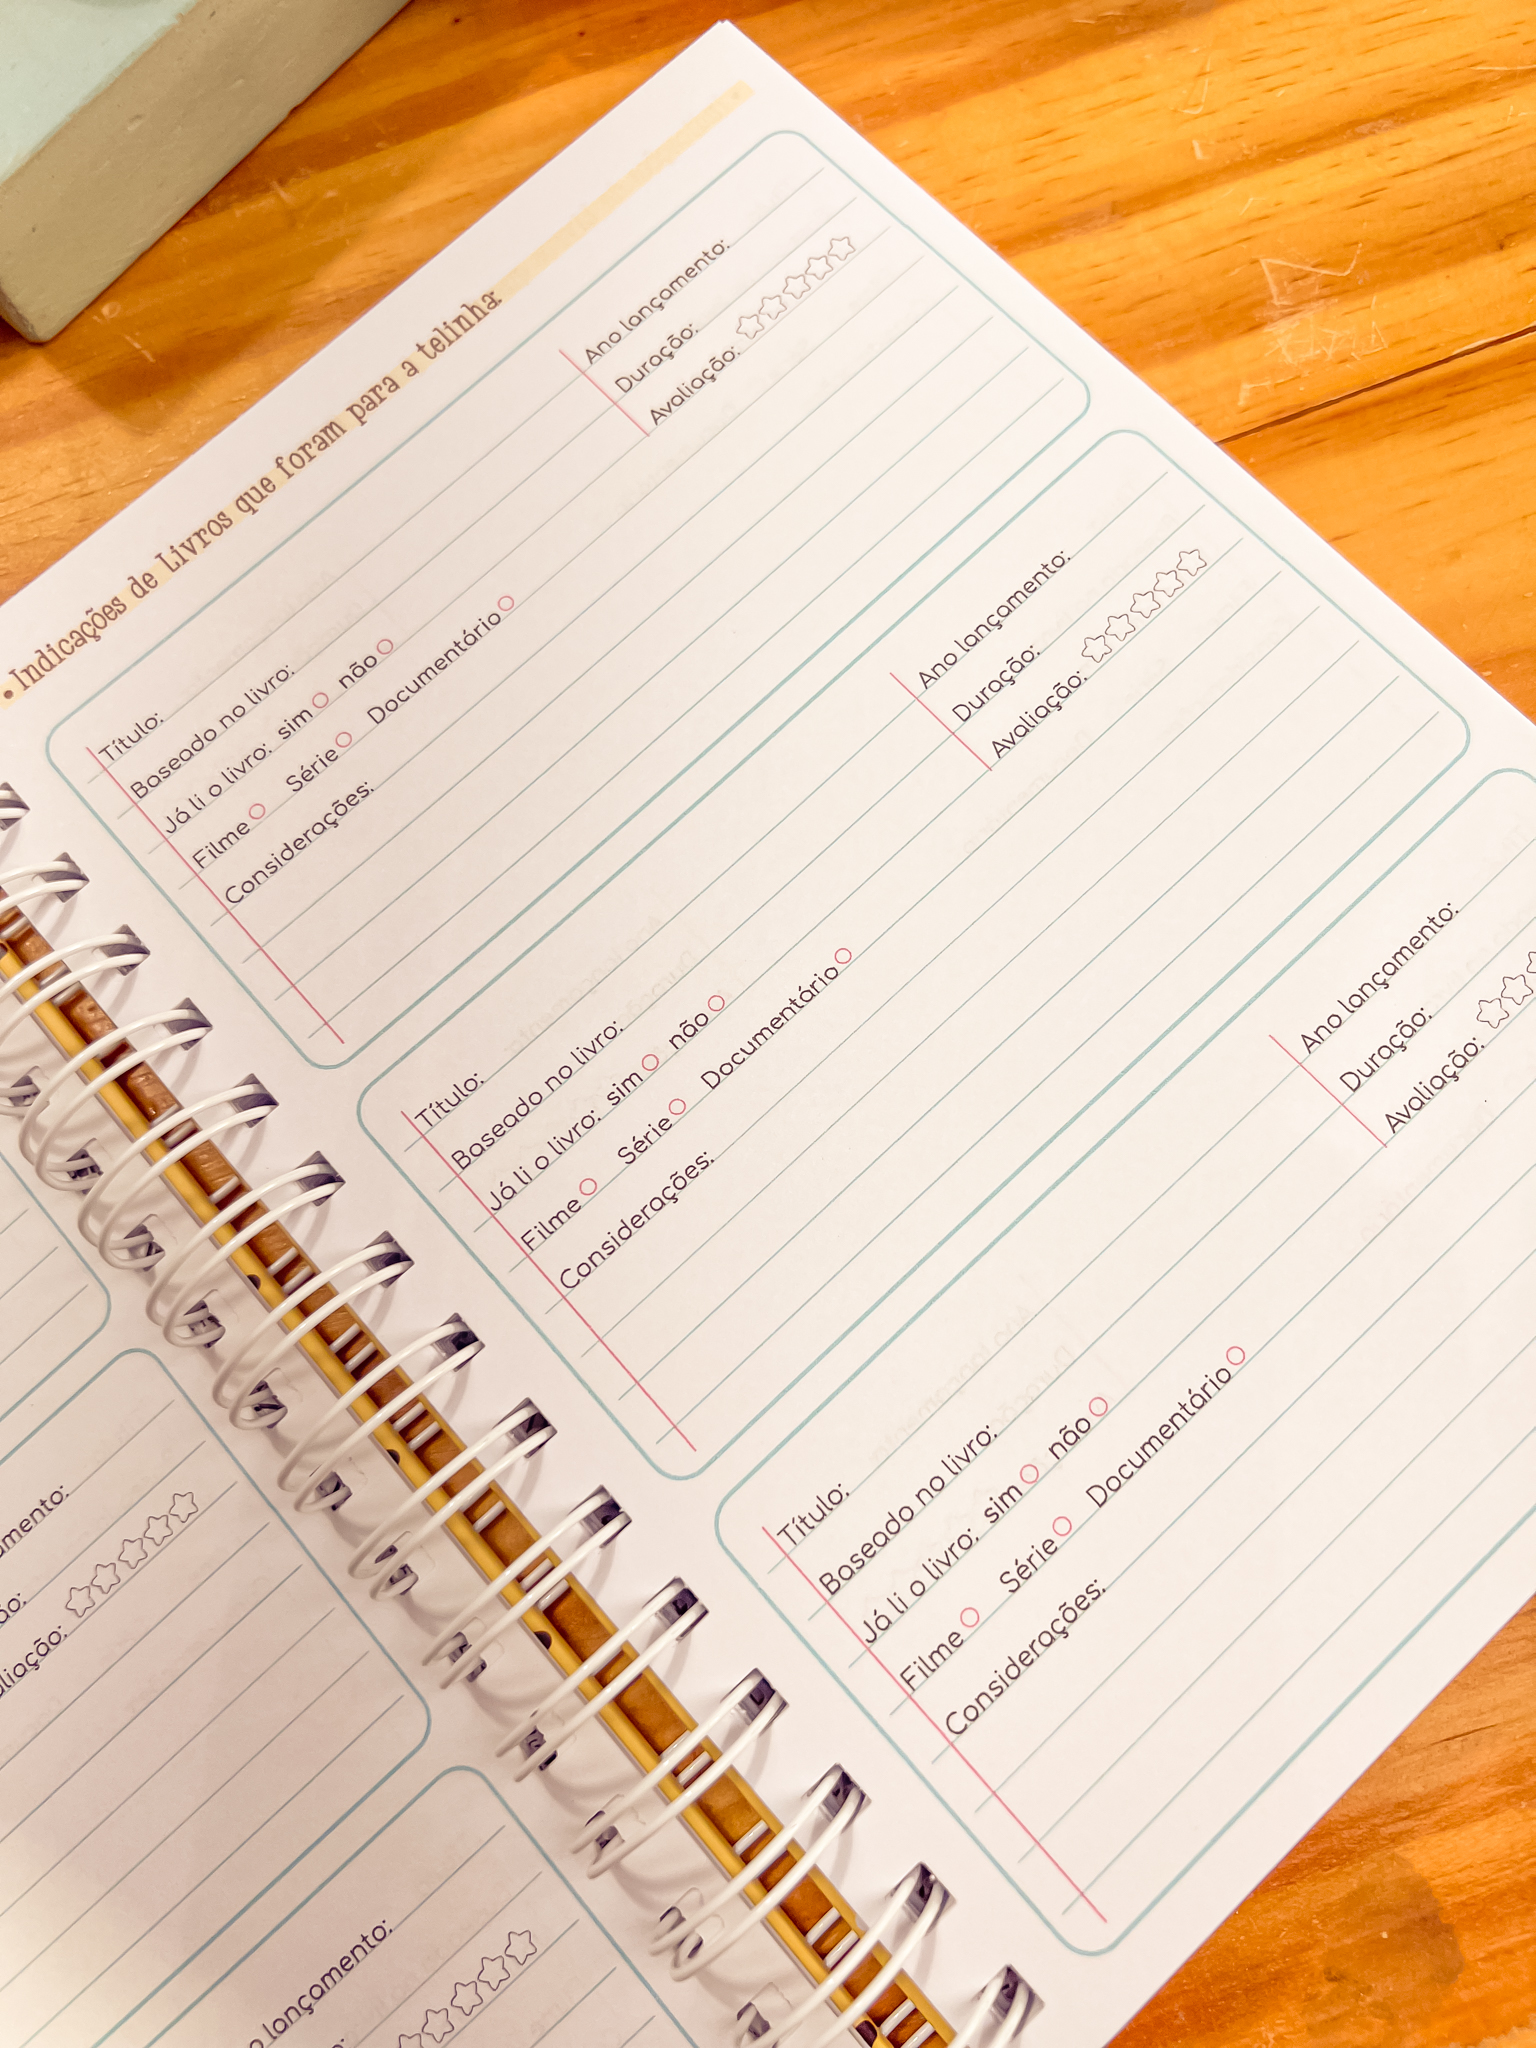 • Indicações de Livros que foram para a telinha:
Título:
Ano lançamento:
Baseado no livro:
Duração:
Já li o livro: sim não
Avaliação:
Filme Série Documentário
Considerações:
Título:
Ano lançamento:
Baseado no livro:
Duração:
Já li o livro: sim não
Avaliação:
Filme Série Documentário
Considerações:
Título:
Ano lançamento:
Baseado no livro:
Duração:
Já li o livro: sim não
Avaliação:
Filme Série Documentário
Considerações:
amento:
ão:
liação:
o lançamento: